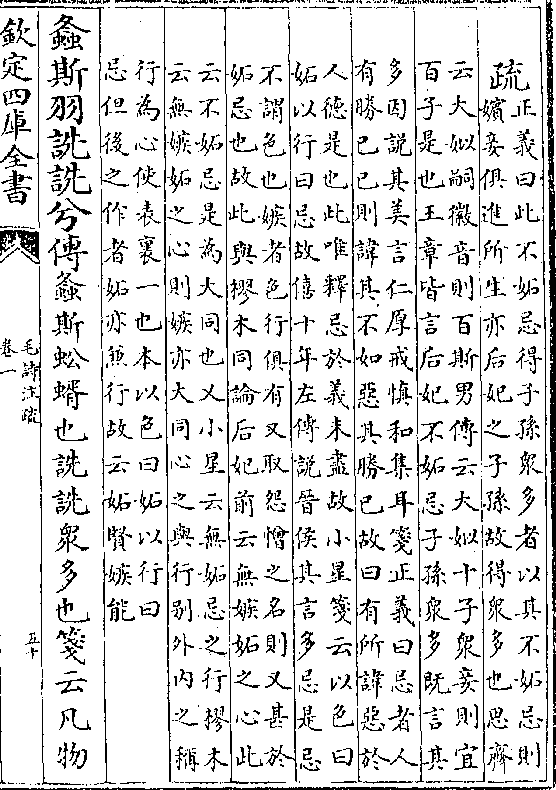 疏正義曰此不妬忌得子孫衆多者以其不妬忌則
嬪妾俱進所生亦后妃之子孫故得衆多也思齊
云大姒嗣徽音則百斯男傳云大姒十子衆妾則宜
百子是也王章皆言后妃不妬忌子孫衆多既言其
多因說其美言仁厚戒慎和集耳箋正義曰忌者人
有勝己己則諱其不如惡其勝己故曰有所諱惡於
人德是也此唯釋忌於義未盡故小星箋云以色曰
妬以行曰忌故僖十年左傳說晉侯其言多忌是忌
不謂色也嫉者色行俱有又取怨憎之名則又甚於
妬忌也故此與樛木同論后妃前云無嫉妬之心此
云不妬忌是為大同也又小星云無妬忌之行樛木
云無嫉妬之心則嫉亦大同心之與行别外内之稱
行為心使表裏一也本以色曰妬以行曰
忌但後之作者妬亦兼行故云妬賢嫉能
螽斯羽詵詵兮傳螽斯蚣蝑也詵詵衆多也箋云凡物
欽定四庫全書
毛詩注疏
卷一
五十